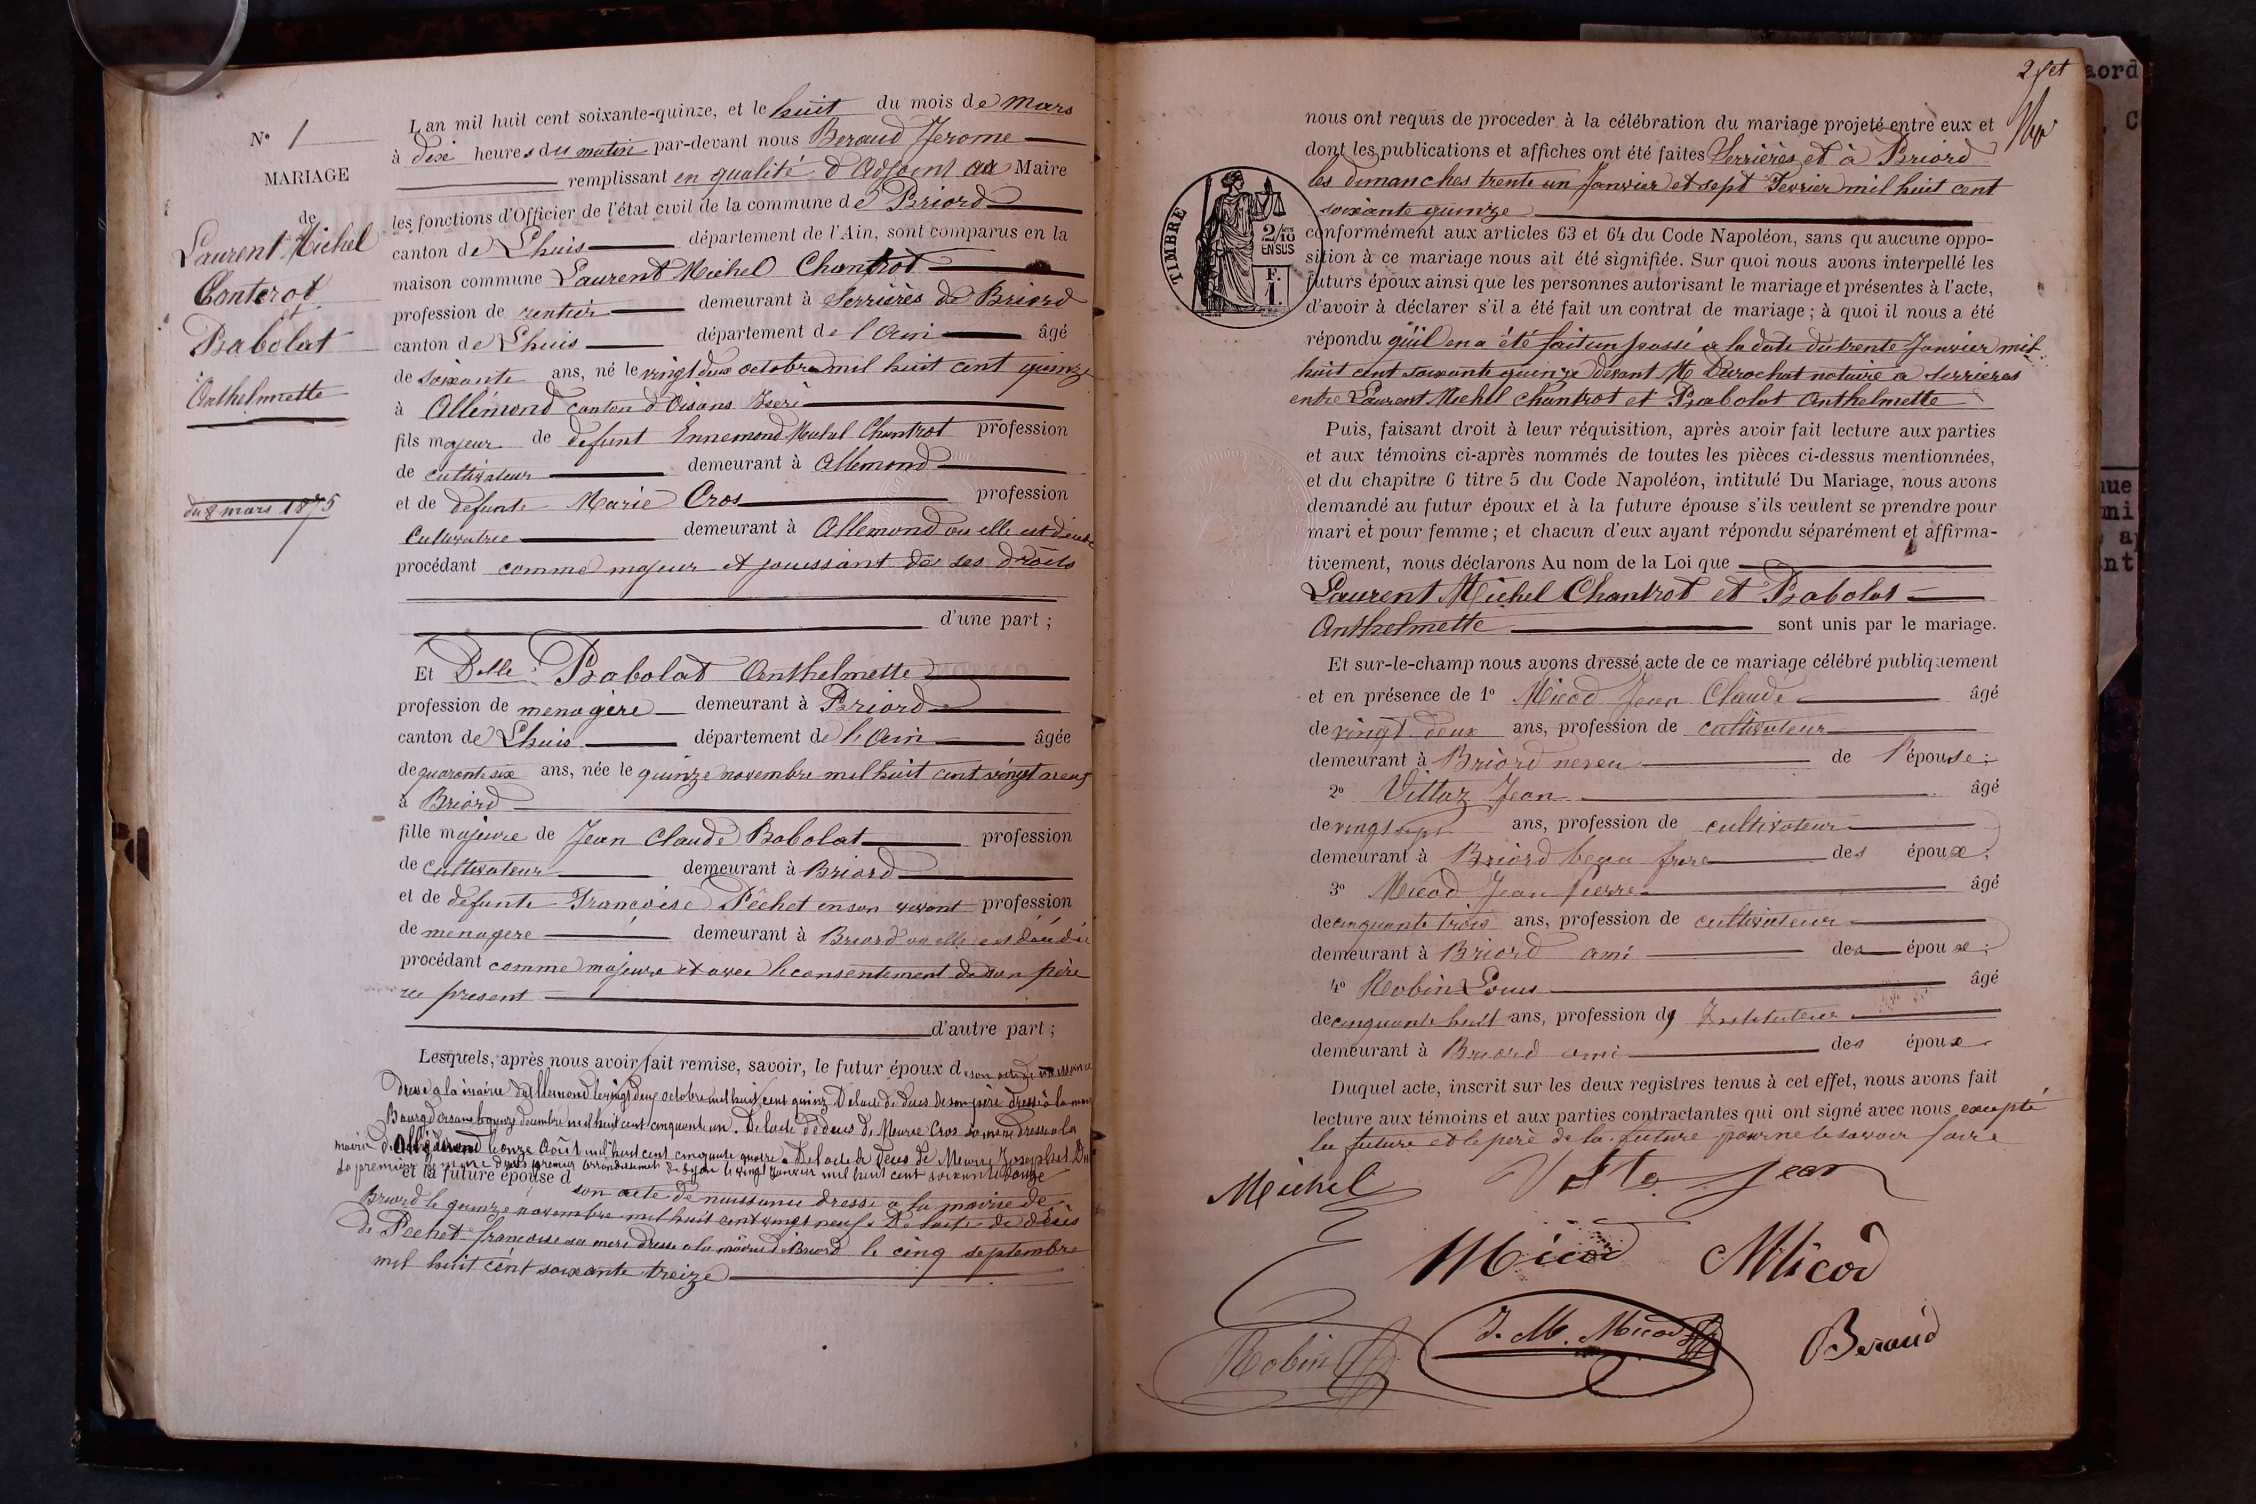 N° 1
MARIAGE
de
Laurent Michel
Canterot
Babolat
Anthelmette
du 8 mars 1875
L'an mil huit cent soixante-quinze, et le huit du mois de Mars
à dix heures du matin par-devant nous Beraud Jerome
remplissant en qualité d'Adjoint au Maire
les fonctions d'Officier de l'état civil de la commune de Briord
canton de Lhuis département de l'Ain, sont comparus en la
maison commune Laurent Michel Chantrot
profession de rentier demeurant à Serrières de Briord
canton de Lhuis département de l'Ain âgé
de soixante ans, né le vingt deux octobre mil huit cent quinze
à Allemond canton d'Oisans Iseré
fils majeur de defunt Ennemond Michel Chantrot profession
de cultivateur demeurant à Allemond
et de defunte Marie Cros profession
Cultivatrice demeurant à Allemond ou elle est
procédant comme majeur et jouissant des ses droits
d'une part ;
Et Delle Babolat Anthelmette
profession de menagère demeurant à Briord
canton de Lhuis département de l'Ain âgée
de quarante six ans, née le quinze novembre mil huit cent vingt neuf
à Briord
fille majeure de Jean Claude Babolat profession
de cultivateur demeurant à Briord
et de defunte Francoise Pêchet en son vivant profession
de menagere demeurant à Briord ou elle est décédée
procédant comme majeure et avec le consentement de son père
ici present
d'autre part ;
Lesquels, après nous avoir fait remise, savoir, le futur époux de son acte de naissance
dressé a la mairie d'allemond le vingt deux octobre mil huit cent quinze De l'acte de décès de son père dressé à la
Bourg d'oisans le quinze decembre mil huit cent cinquante un. De l'acte de deces de Marie Cros sa mere dressé a la
mairie d'Allemond le onze Août mil huit cent cinquante quatre De l'acte de deces de
sa premiere premier arrondissement de Lyon le vingt janvier mil huit cent soixante
et la future épouse d son acte de naissance dressé a la mairie de
Briord le quinze novembre mil huit cent vingt neuf De l'acte de décès
de Pechet francoise sa mere dressé a la mairie de Briord le cinq septembre
mil huit cent soixante treize
2 fet
nous ont requis de proceder à la célébration du mariage projeté entre eux et
dont les publications et affiches ont été faites Serrières et à Briord
les dimanches trente un Janvier et sept Fevrier mil huit cent
soixante quinze
TIMBRE
2/10 EN SUS
F. 1.
conformément aux articles 63 et 64 du Code Napoléon, sans qu'aucune oppo-
sition à ce mariage nous ait été signifiée. Sur quoi nous avons interpellé les
futurs époux ainsi que les personnes autorisant le mariage et présentes à l'acte,
d'avoir à déclarer s'il a été fait un contrat de mariage ; à quoi il nous a été
répondu qu'il en a été fait un passé a la date du trente Janvier mil
huit cent soixante quinze devant M Durochat notaire a serrieres
entre Laurent Michel Chantrot et Babolat Anthelmette
Puis, faisant droit à leur réquisition, après avoir fait lecture aux parties
et aux témoins ci-après nommés de toutes les pièces ci-dessus mentionnées,
et du chapitre 6 titre 5 du Code Napoléon, intitulé Du Mariage, nous avons
demandé au futur époux et à la future épouse s'ils veulent se prendre pour
mari et pour femme ; et chacun d'eux ayant répondu séparément et affirma-
tivement, nous déclarons Au nom de la Loi que
Laurent Michel Chantrot et Babolat
Anthelmette sont unis par le mariage.
Et sur-le-champ nous avons dressé acte de ce mariage célébré publiquement
et en présence de 1° Micod Jean Claude âgé
de vingt deux ans, profession de cultivateur
demeurant à Briord neveu de l'épouse ;
2° Vittoz Jean âgé
de vingt sept ans, profession de cultivateur
demeurant à Briord beau frere des époux ;
3° Micod Jean pierre âgé
de cinquante trois ans, profession de cultivateur
demeurant à Briord ami des époux ;
4° Robin Louis âgé
de cinquante huit ans, profession d' Instituteur
demeurant à Briord ami des époux
Duquel acte, inscrit sur les deux registres tenus à cet effet, nous avons fait
lecture aux témoins et aux parties contractantes qui ont signé avec nous excepté
la future et le pere de la future pour ne le savoir faire
Michel Jean
Micod Micod
Robin J. M. Micod Beraud